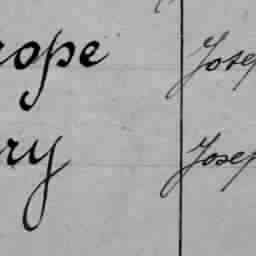 rope Josep
ry Josep